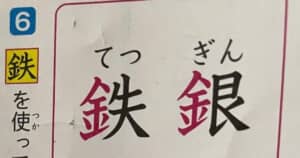 6
鉄を使っ
つか
てつ
ぎん
鉄 銀